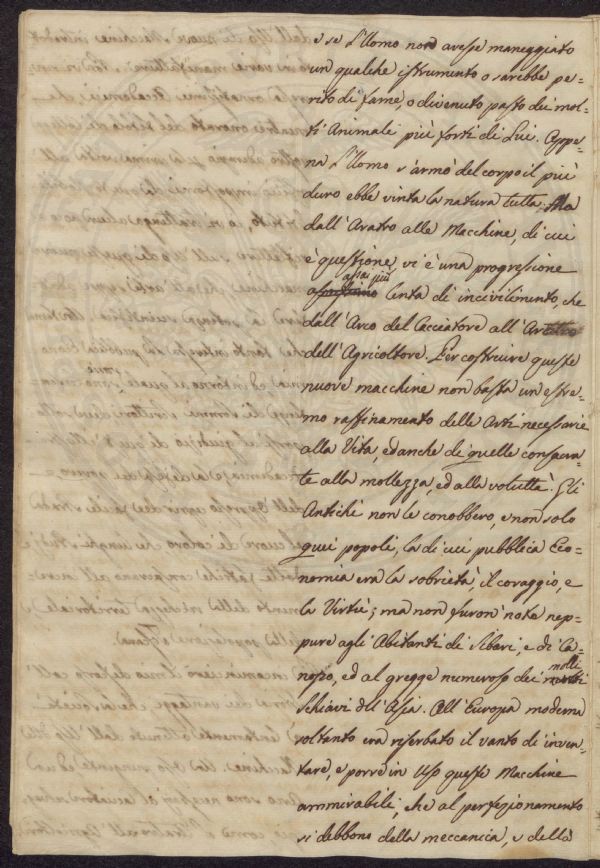 e se l'Uomo non avesse maneggiato
un qualche istrumento o sarebbe pe-
rito di fame, o divenuto pasto dei mol-
ti Animali più forti di Lui. Appe-
na l'Uomo s'armò del corpo il più
duro ebbe vinta la natura tutta. Ma
dall'Aratro alle Macchine, di cui
è questione, vi è una progressione
assai più
lenta di incivilimento, che
dall'Arco del Cacciatore all'Aratro
dell'Agricoltore. Per costruire queste
nuove macchine non basta un estre-
mo raffinamento delle Arti necessarie
alla Vita, ed anche di quelle consacra-
te alla mollezza, ed alla voluttà. Gli
Antichi non le conobbero, e non solo
quei popoli, la di cui pubblica Eco-
nomia era la sobrietà, il coraggio, e
la Virtù; ma non furon note nep-
pure agli Abitanti di Sibari, e di Ca-
nopo, ed al gregge numeroso dei molli
Schiavi dell'Asia. All'Europa moderna
soltanto era riserbato il vanto di inven-
tare, e porre in Uso queste Macchine
ammirabili, che al perfezionamento
si debbono della meccanica, e della